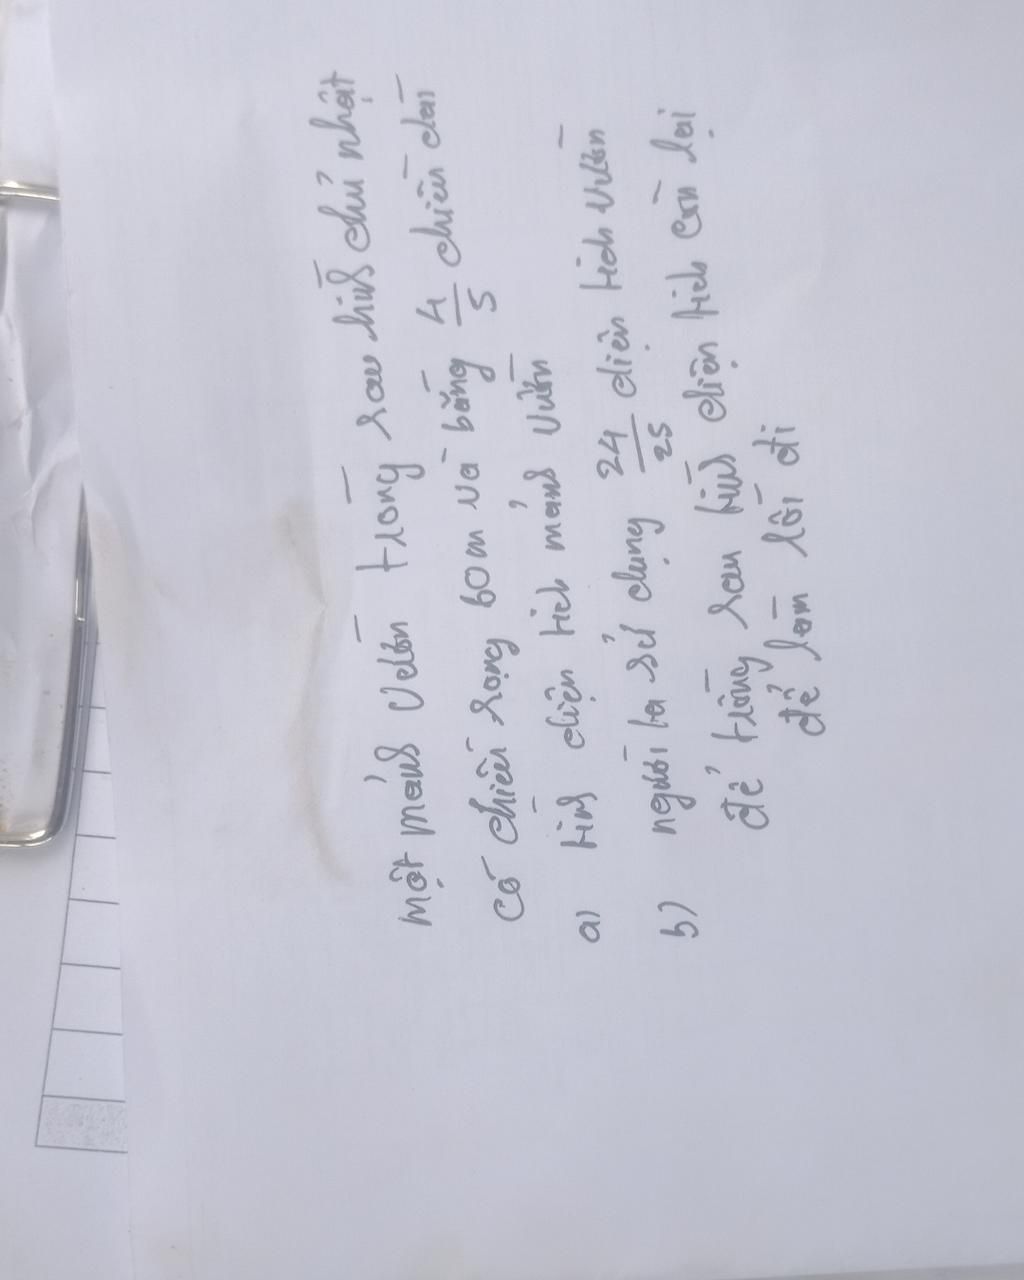 một mảnh vườn trồng rau hình chữ nhật
có chiều rộng 60m và bằng 4/5 chiều dài
a) tính diện tích mảnh vườn
b) người ta sử dụng 24/25 diện tích vườn
để trồng rau tính diện tích còn lại
để làm lối đi